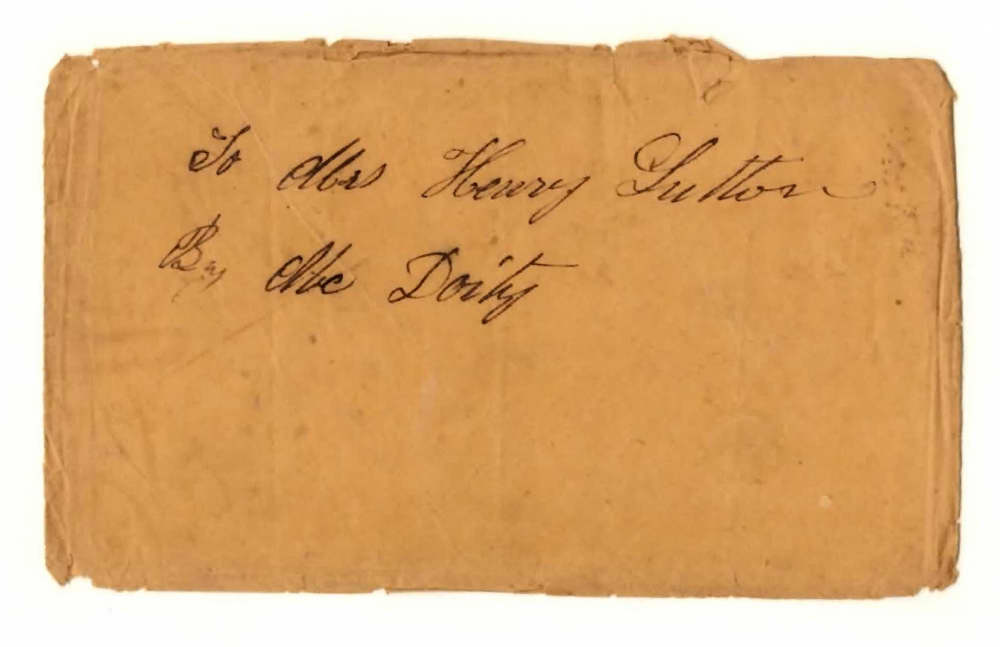 To Mrs Henry Sutton
By Mc Doity